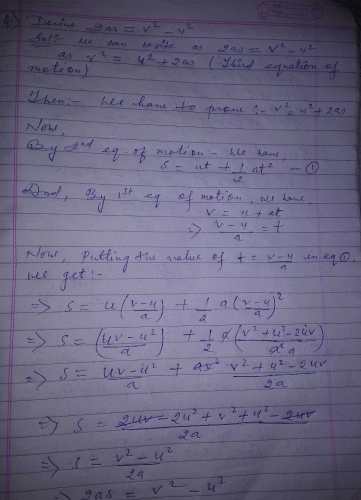 1) Derive 2as = v² - u²
Sol:- we can write as 2as = v² - u²
as v² = u² + 2as (Third equation of
motion)
Then:- we have to prove :- v² = u² + 2as
Now,
By 2nd eq. of motion:- we have,
s = ut + 1/2 at² — ①
And, By 1st eq. of motion, we have,
v = u + at
⇒ (v-u)/a = t
Now, Putting the value of t = (v-u)/a in eq ①.
we get:-
⇒ s = u((v-u)/a) + 1/2 a((v-u)/a)²
⇒ s = ((uv-u²)/a) + 1/2 a((v²+u²-2uv)/a² a)
⇒ s = (uv-u²)/a + (v²+u²-2uv)/2a
⇒ s = (2uv - 2u² + v² + u² - 2uv)/2a
⇒ s = (v² - u²)/2a
⇒ 2as = v² - u²